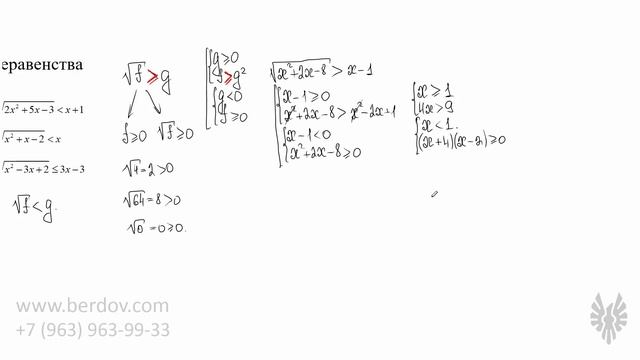 еравенства
√2x²+5x−3 < x+1
√x²+x−2 < x
√x²−3x+2 ≤ 3x−3
√f < g.
√f ≥ g
f ≥ 0 √f ≥ 0
√4 = 2 > 0
√64 = 8 > 0
√0 = 0 ≥ 0.
g ≥ 0
f ≥ g²
g < 0
f ≥ 0
√x²+2x−8 > x−1
x−1 ≥ 0
x²+2x−8 > x²−2x+1
x−1 < 0
x²+2x−8 ≥ 0
x ≥ 1
4x > 9
x < 1.
(x+4)(x−2) ≥ 0
www.berdov.com
+7 (963) 963-99-33